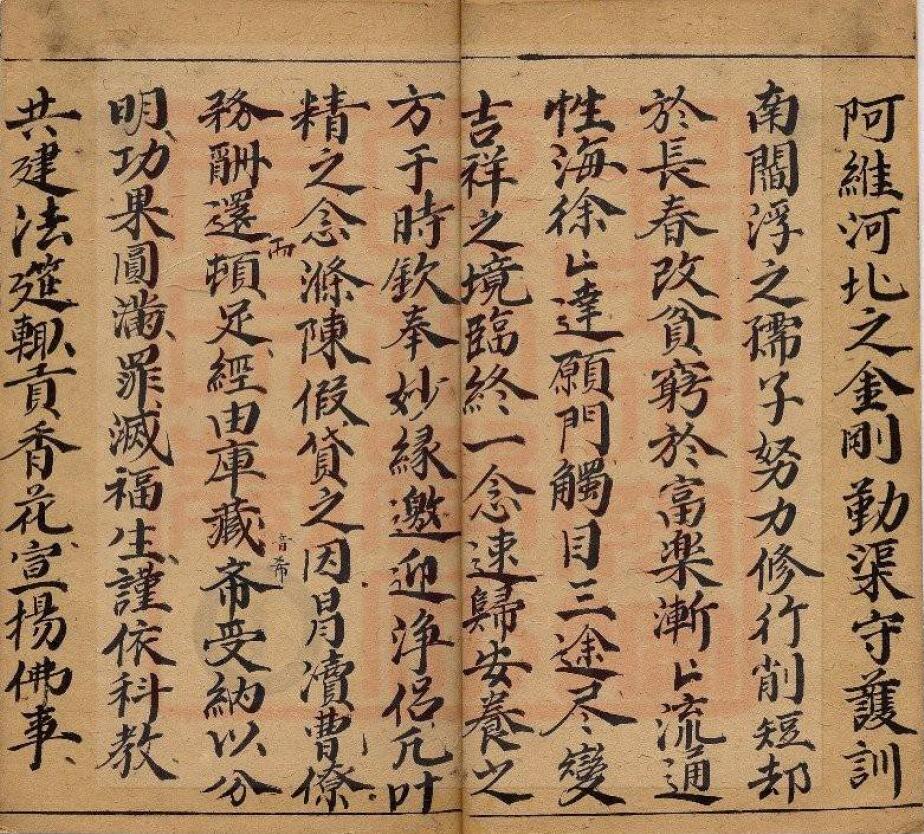 阿維河北之金剛勤渠守護訓
南閻浮之孺子努力修行削短却
於長春改貧窮於富楽漸〻流通
性海徐〻達願門觸目三途尽變
吉祥之境臨終一念速歸安養之
方于時欽奉妙縁邀迎浄侣兀叶
精之念滌陳假貸之因冐瀆曹僚
務酬還頓足經由庫藏斋受納以分
而
音希
明功果圓滿罪滅福生謹依科教
共建法筵輙貢香花宣揚佛事